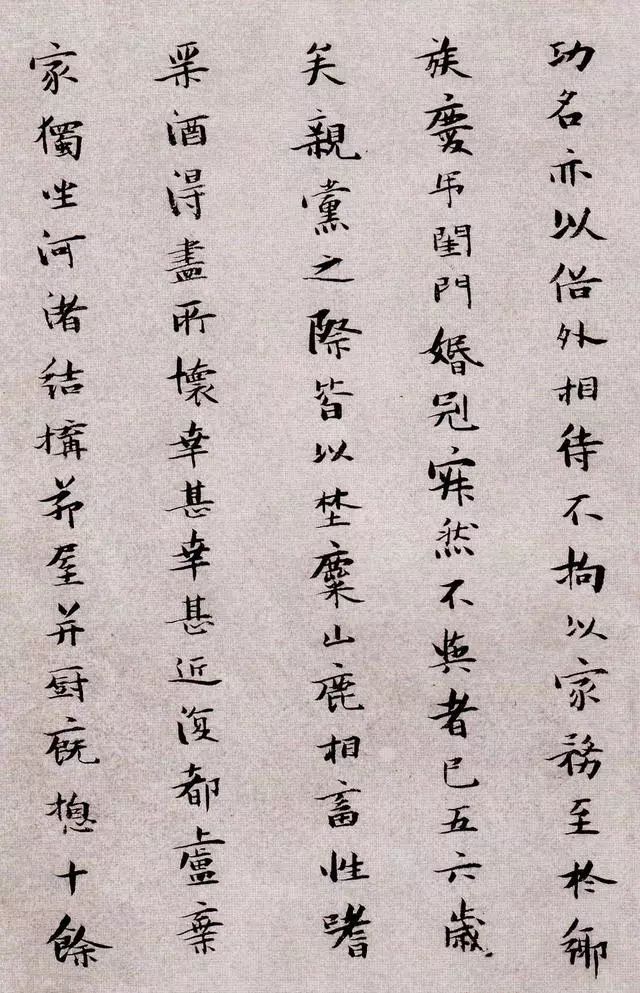 功名亦以俗外相待不拘以家務至於鄉
族慶吊閨門婚冠寂然不與者已五六歲
矣親黨之際皆以埜麋山鹿相畜性嗜
琹酒得盡所懷幸甚幸甚近復都盧棄
家獨坐河渚結構茆屋并厨廐揔十餘